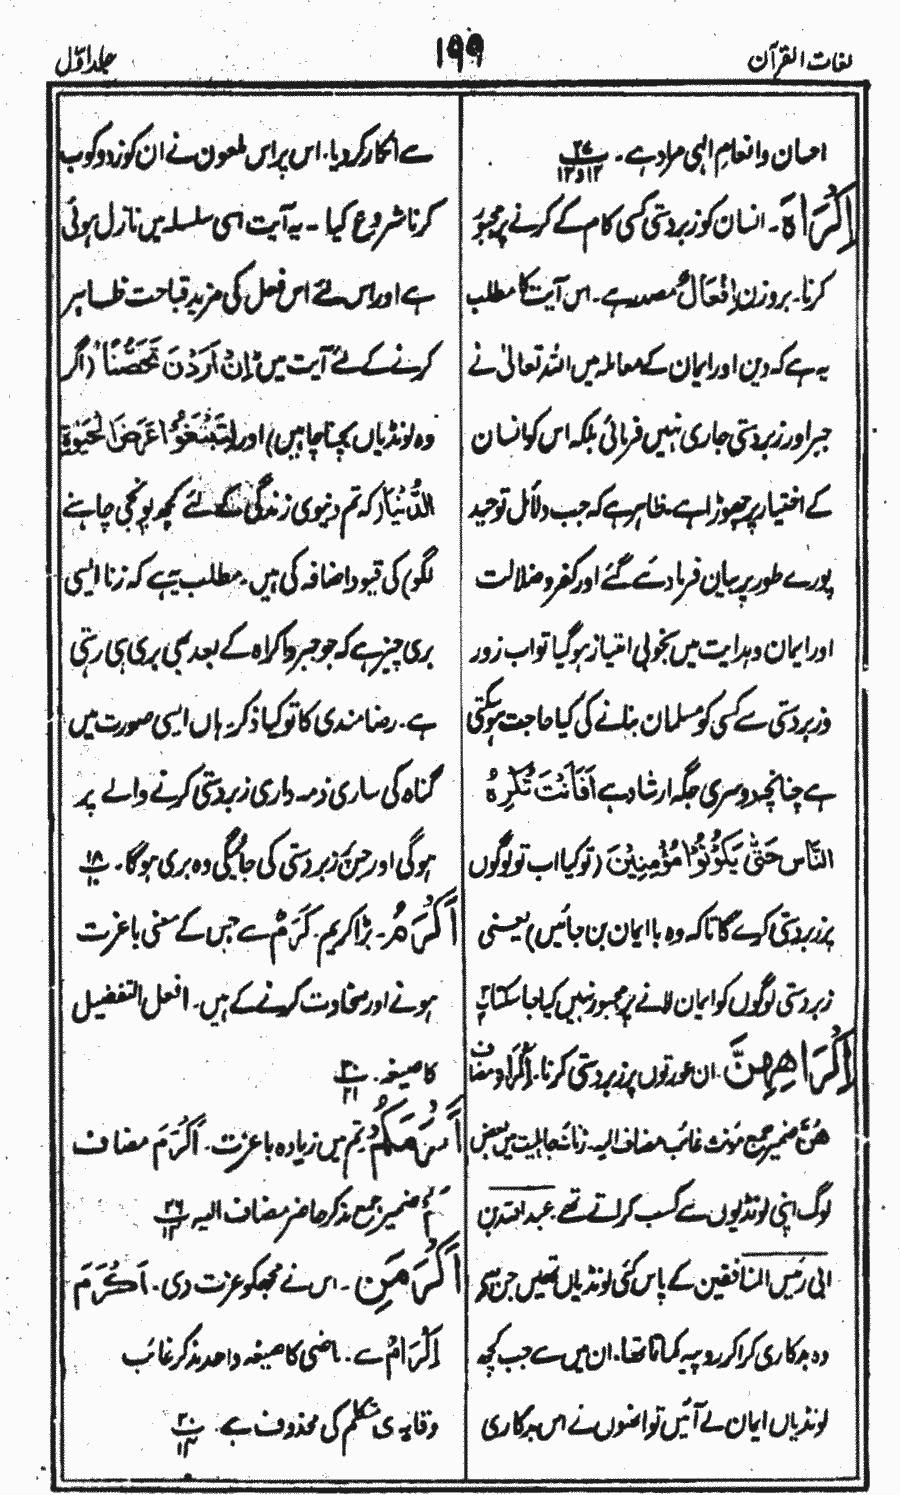 لغات القرآن
۱۹۹
جلد اوّل
احسان وانعامِ الٰہی مراد ہے۔ ۲۷ ۱۲و۱۳
اِکْرَاہَ۔ انسان کو زبردستی کسی کام کے کرنے پر مجبور
کرنا۔ بروزن اِفْعَالٌ مصدر ہے۔ اس آیت کا مطلب
یہ ہے کہ دین اور ایمان کے معاملہ میں اللہ تعالیٰ نے
جبر اور زبردستی جاری نہیں فرمائی بلکہ اس کو انسان
کے اختیار پر چھوڑا ہے۔ ظاہر ہے کہ جب دلائل توحید
پورے طور پر بیان فرما دئے گئے اور کفر و ضلالت
اور ایمان و ہدایت میں بخوبی امتیاز ہو گیا تو اب زور
و زبردستی سے کسی کو مسلمان بنانے کی کیا حاجت ہو سکتی
ہے چنانچہ دوسری جگہ ارشاد ہے اَفَاَنْتَ تُکْرِہُ
النَّاسَ حَتّٰی یَکُوْنُوْا مُؤْمِنِیْنَ (تو کیا اب تو لوگوں
پر زبردستی کرے گا تاکہ وہ با ایمان بن جائیں) یعنی
زبردستی لوگوں کو ایمان لانے پر مجبور نہیں کیا جا سکتا
اِکْرَاهِهِنَّ۔ ان عورتوں پر زبردستی کرنا۔ اِکْرَاہ مضاف
هُنَّ ضمیر جمع مؤنث غائب مضاف الیہ۔ زمانۂ جاہلیت میں بعض
لوگ اپنی لونڈیوں سے کسب کراتے تھے۔ عبد اللہ بن
ابی رئیس المنافقین کے پاس کئی لونڈیاں تھیں جن سے
وہ بدکاری کرا کر روپیہ کماتا تھا۔ ان میں سے جب کچھ
لونڈیاں ایمان لے آئیں تو انھوں نے اس بدکاری
سے انکار کر دیا۔ اس پر اس ملعون نے ان کو زد و کوب
کرنا شروع کیا۔ یہ آیت اسی سلسلہ میں نازل ہوئی
ہے اور اس لئے اس فعل کی مزید قباحت ظاہر
کرنے کے لئے آیت میں اِنْ اَرَدْنَ تَحَصُّنًا (اگر
وہ لونڈیاں بچنا چاہیں) اور لِتَبْتَغُوْا عَرَضَ الْحَیٰوۃِ
الدُّنْیَا (کہ تم دنیوی زندگی کے لئے کچھ پونجی چاہنے
لگو) کی قیود اضافہ کی ہیں۔ مطلب یہ ہے کہ زنا ایسی
بری چیز ہے کہ جو جبر و اکراہ کے بعد بھی بری ہی رہتی
ہے۔ رضا مندی کا تو کیا ذکر۔ ہاں ایسی صورت میں
گناہ کی ساری ذمہ داری زبردستی کرنے والے پر
ہوگی اور جن پر زبردستی کی جائیگی وہ بری ہوگا۔ ۱۸ ۱۰
اَکْرَمُ۔ بڑا کریم۔ کَرَمٌ سے جس کے معنی باعزت
ہونے اور سخاوت کرنے کے ہیں۔ افعل التفضیل
کا صیغہ۔ ۳۰ ۲۱
اَکْرَمَکُمْ۔ تم میں زیادہ باعزت۔ اَکْرَمَ مضاف
کُمْ ضمیر جمع مذکر حاضر مضاف الیہ ۲۶ ۱۴
اَکْرَمَنِ۔ اس نے مجھ کو عزت دی۔ اَکْرَمَ
اِکْرَامٌ سے۔ ماضی کا صیغہ واحد مذکر غائب
وقایہ ی متکلم کی محذوف ہے۔ ۳۰ ۱۴